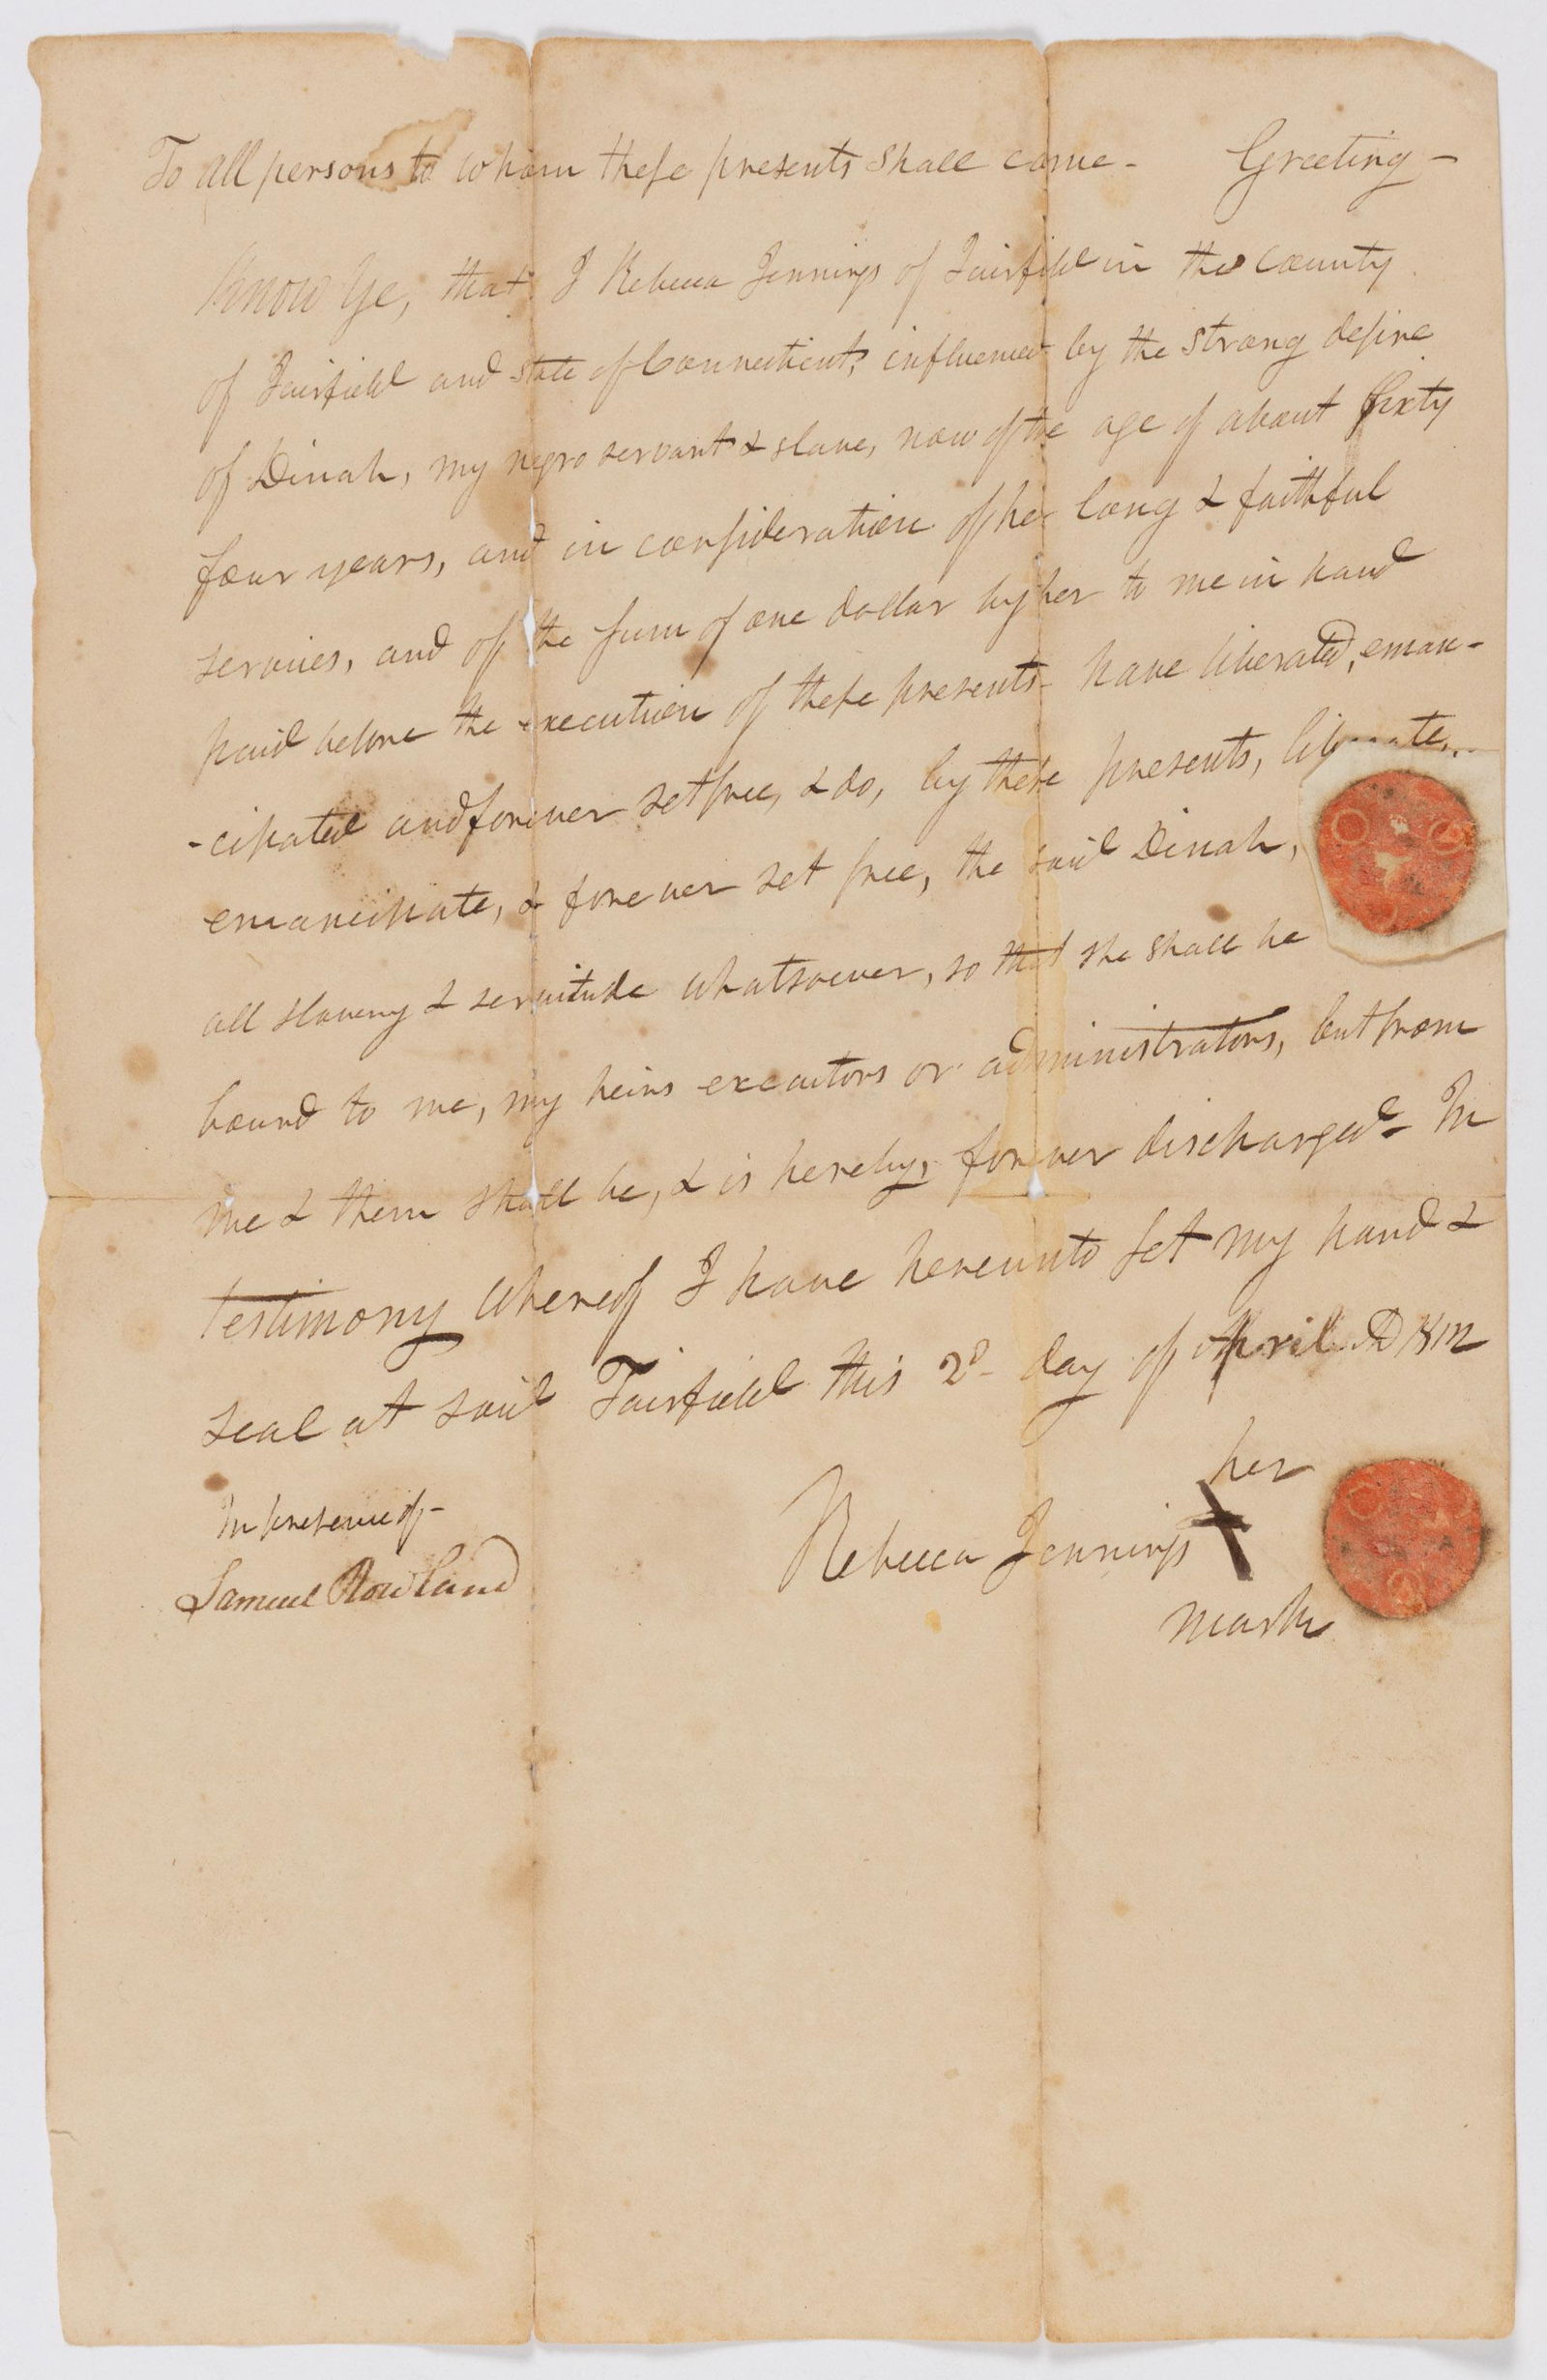 To all persons to whom these presents shall come - Greeting -
Know Ye, that I Rebecca Jennings of Fairfield in the County
of Fairfield and state of Connecticut, influenced by the strong desire
of Dinah, my negro servant & slave, now of the age of about sixty
four years, and in consideration of her long & faithful
services, and of the sum of one dollar by her to me in hand
paid before the execution of these presents - have liberated, eman-
-cipated and forever set free, & do, by these presents, liberate,
emancipate, & forever set free, the said Dinah,
all slavery & servitude whatsoever, so that she shall be
bound to me, my heirs executors or administrators, but from
me & them shall be, & is hereby, forever discharged - In
testimony whereof I have hereunto set my hand &
seal at said Fairfield this 2d - day of April AD 1812
In presence of -
Samuel Rowland
her
Rebecca Jennings X
mark